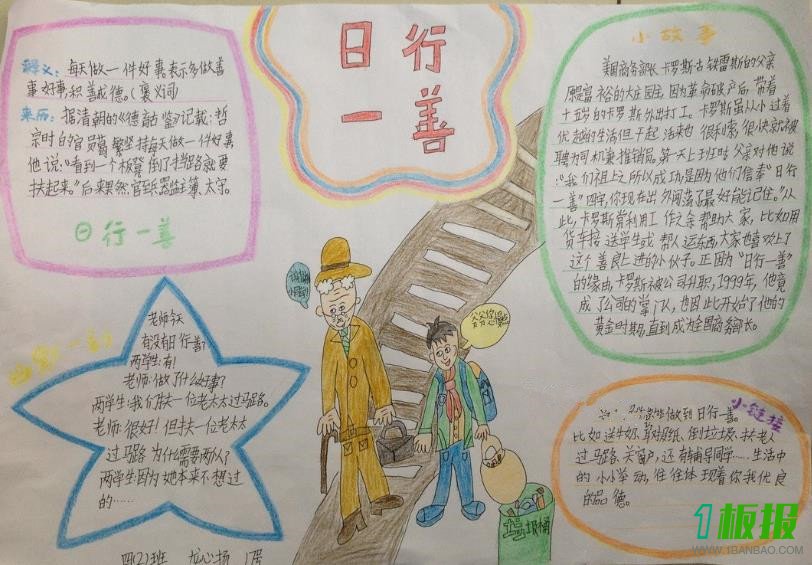 日行
一善
释义：每天做一件好事，表示多做善
事好事，积善成德。(褒义词)
来历：据清朝的《德育古鉴》记载：哲
宗时的官员葛繁坚持每天做一件好事
他说："看到一个板凳倒了挡路就要
扶起来。"后来果然官至
簿、太守。
日行一善
小故事
美国商务部长卡罗斯·古铁雷斯的父亲
原是富裕的大庄园主，因为革命破产后，带着
十五岁的卡罗斯外出打工。卡罗斯虽从小过着
优越的生活但干起活来也很利索，很快就被
聘为司机兼推销员。第一天上班时父亲对他说
："我们祖上之所以成功是因为他们信奉"日行
一善"四字，你现在出外闯荡了最好能记住。"从
此，卡罗斯常利用工作之余帮助大家，比如用
货车接送学生或帮人运东西，大家也喜欢上了
这个善良上进的小伙子。正因为"日行一善"
的缘由，卡罗斯被公司升职，1999年，他竟
成了公司的掌门人，也因此开始了他的
黄金时期，直到成为全国商务部长。
老师：今天
有没有日行一善？
两学生：有！
老师：做了什么好事？
两学生：我们扶一位老太太过马路。
老师：很好！但扶一位老太太
过马路为什么需要两个人？
两学生：因为她本来不想过
的……
小链接
做到日行一善。
比如送牛奶、倒垃圾、扶老人
过马路、关窗户，还有辅导同学……生活中
的小小举动，往往体现着你我优良
的品德。
垃圾桶
四(2)班
1板报
WWW.1BANBAO.COM